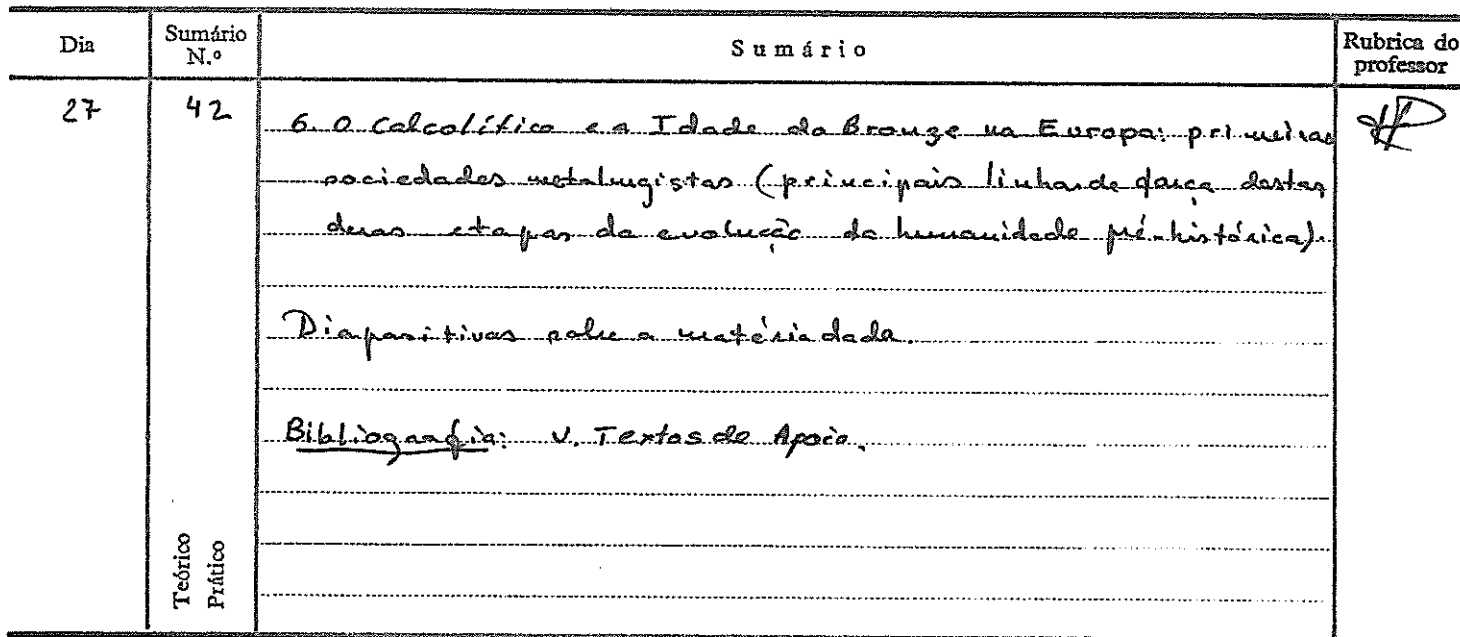 Dia
Sumário
N.º
Sumário
Rubrica do
professor
27
42
6. O Calcolítico e a Idade do Bronze na Europa: primeiras
sociedades metalurgistas (principais linhas de força destas
duas etapas da evolução da humanidade pré-histórica).
Diapositivos sobre a matéria dada.
Bibliografia: V. Textos de Apoio.
Teórico
Prático